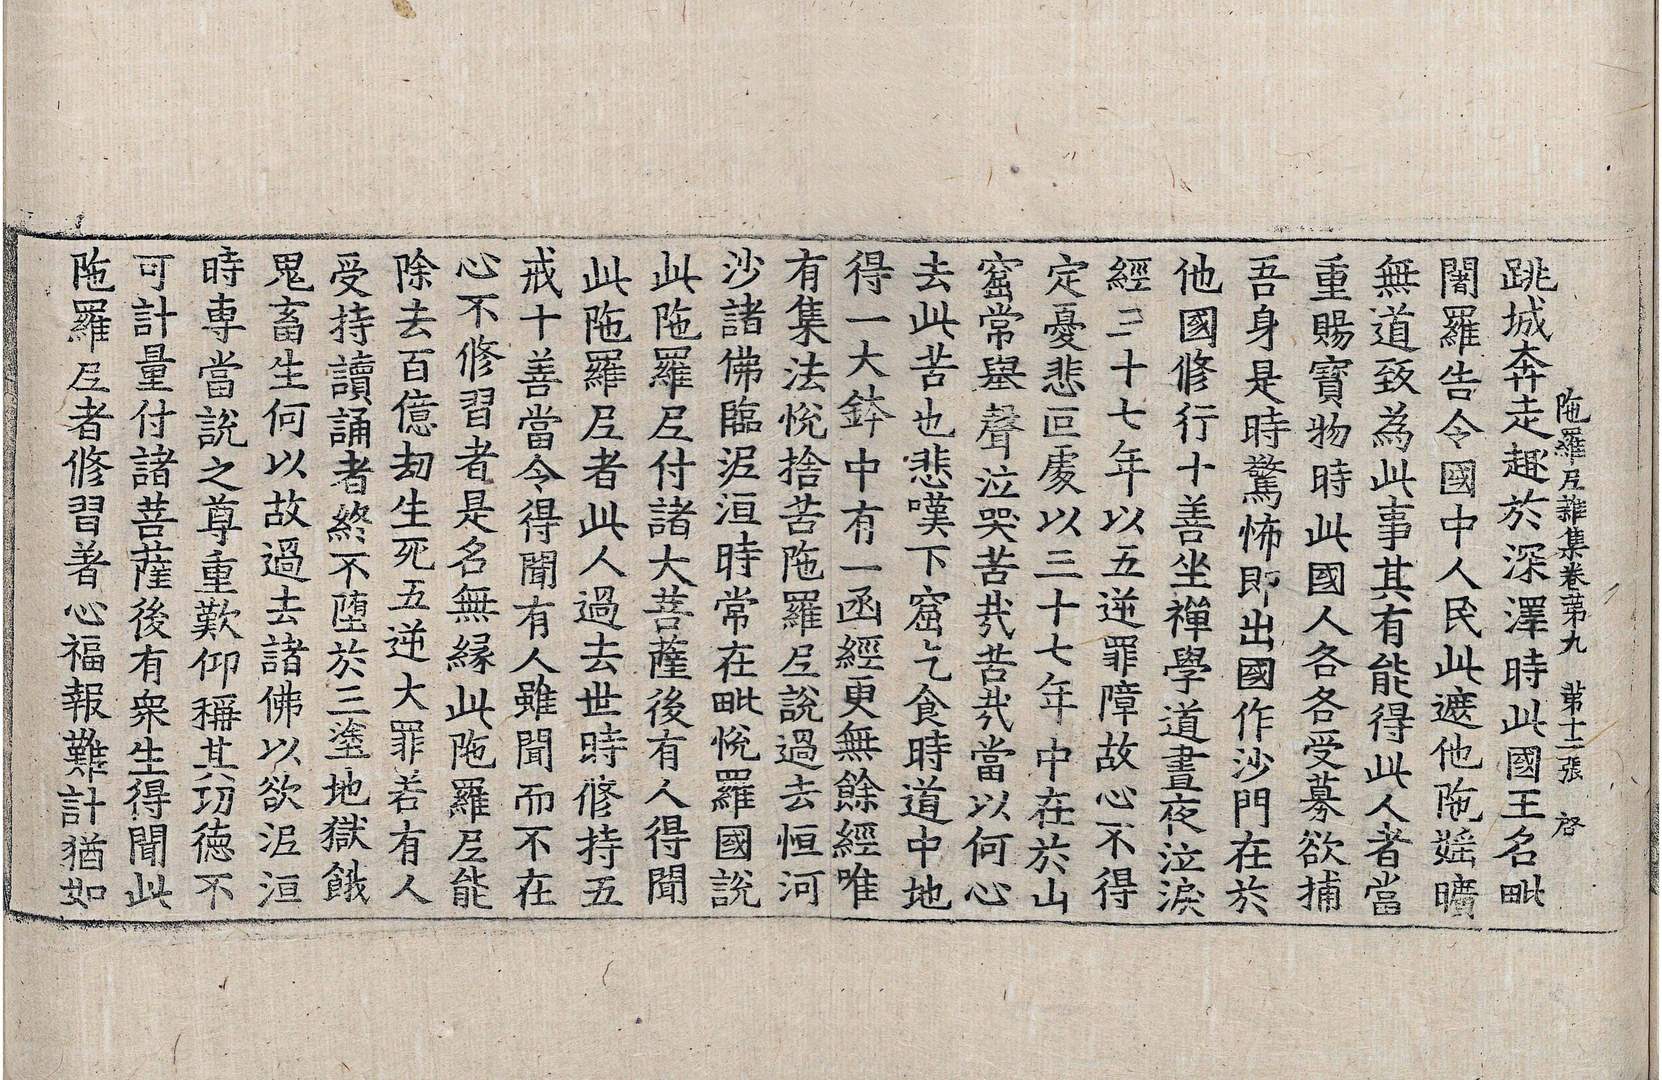 陁羅尼雜集卷第九　第十二張　啓
跳城奔走趣於深澤時此國王名毗
闍羅告令國中人民此遮他陁婬曠
無道致為此事其有能得此人者當
重賜寶物時此國人各各受募欲捕
吾身是時驚怖即出國作沙門在於
他國修行十善坐禪學道晝夜泣淚
經三十七年以五逆罪障故心不得
定憂悲叵處以三十七年中在於山
窟常舉聲泣哭苦㢤苦㢤當以何心
去此苦也悲嘆下窟乞食時道中地
得一大鉢中有一函經更無餘經唯
有集法悅捨苦陁羅尼說過去恒河
沙諸佛臨泥洹時常在毗悅羅國說
此陁羅尼付諸大菩薩後有人得聞
此陁羅尼者此人過去世時修持五
戒十善當令得聞有人雖聞而不在
心不修習者是名無縁此陁羅尼能
除去百億劫生死五逆大罪若有人
受持讀誦者終不墮於三塗地獄餓
鬼畜生何以故過去諸佛以欲泥洹
時專當說之尊重歎仰稱其功德不
可計量付諸菩薩後有衆生得聞此
陁羅尼者修習著心福報難計猶如